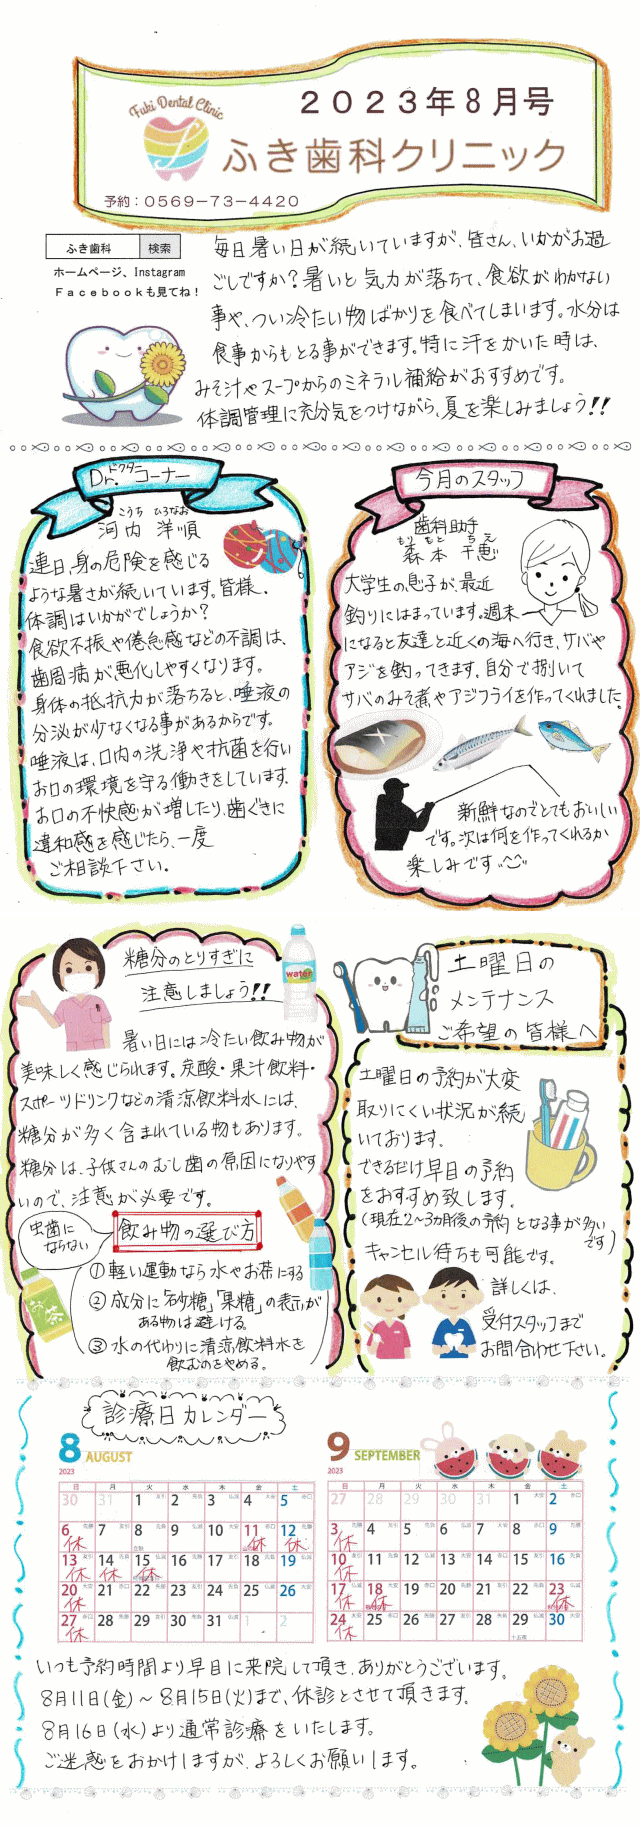 Fuki Dental Clinic
2023年8月号
ふき歯科クリニック
予約：0569-73-4420
ふき歯科 検索
ホームページ、Instagram
Facebookも見てね！
毎日暑い日が続いていますが、皆さん、いかがお過
ごしですか？暑いと気力が落ちて、食欲がわかない
事や、つい冷たい物ばかりを食べてしまいます。水分は
食事からもとる事ができます。特に汗をかいた時は、
みそ汁やスープからのミネラル補給がおすすめです。
体調管理に充分気をつけながら、夏を楽しみましょう!!
Dr.ドクターコーナー
こうち ひろなお
河内 洋順
連日、身の危険を感じる
ような暑さが続いています。皆様、
体調はいかがでしょうか？
食欲不振や倦怠感などの不調は、
歯周病が悪化しやすくなります。
身体の抵抗力が落ちると、唾液の
分泌が少なくなる事があるからです。
唾液は、口内の洗浄や抗菌を行い
お口の環境を守る働きをしています。
お口の不快感が増したり、歯ぐきに
違和感を感じたら、一度
ご相談下さい。
今月のスタッフ
歯科助手
もりもと ちえ
森本 千恵
大学生の息子が、最近
釣りにはまっています。週末
になると友達と近くの海へ行き、サバや
アジを釣ってきます。自分で捌いて
サバのみそ煮やアジフライを作ってくれました。
新鮮なのでとてもおいしい
です。次は何を作ってくれるか
楽しみです
糖分のとりすぎに
注意しましょう!!
water
暑い日には冷たい飲み物が
美味しく感じられます。炭酸・果汁飲料・
スポーツドリンクなどの清涼飲料水には、
糖分が多く含まれている物もあります。
糖分は、子供さんのむし歯の原因になりやす
いので、注意が必要です。
虫歯に
ならない
飲み物の選び方
①軽い運動なら水やお茶にする
②成分に「砂糖」「果糖」の表示が
ある物は避ける。
③水の代わりに清涼飲料水を
飲むのをやめる。
お茶
土曜日の
メンテナンス
ご希望の皆様へ
土曜日の予約が大変
取りにくい状況が続
いております。
できるだけ早目の予約
をおすすめ致します。
(現在2〜3ヵ月後の予約となる事が多い
です)
キャンセル待ちも可能です。
詳しくは、
受付スタッフまで
お問合わせ下さい。
診療日カレンダー
8 AUGUST
2023
日 月 火 水 木 金 土
30 31 1 2 3 4 5
6 7 8 9 10 11 12
休 休 休
13 14 15 16 17 18 19
休 休 休
20 21 22 23 24 25 26
休
27 28 29 30 31 1 2
休
9 SEPTEMBER
2023
日 月 火 水 木 金 土
27 28 29 30 31 1 2
3 4 5 6 7 8 9
休
10 11 12 13 14 15 16
休
17 18 19 20 21 22 23
休 休 休
24 25 26 27 28 29 30
休
いつも予約時間より早目に来院して頂き、ありがとうございます。
8月11日(金)〜8月15日(火)まで、休診とさせて頂きます。
8月16日(水)より通常診療をいたします。
ご迷惑をおかけしますが、よろしくお願いします。